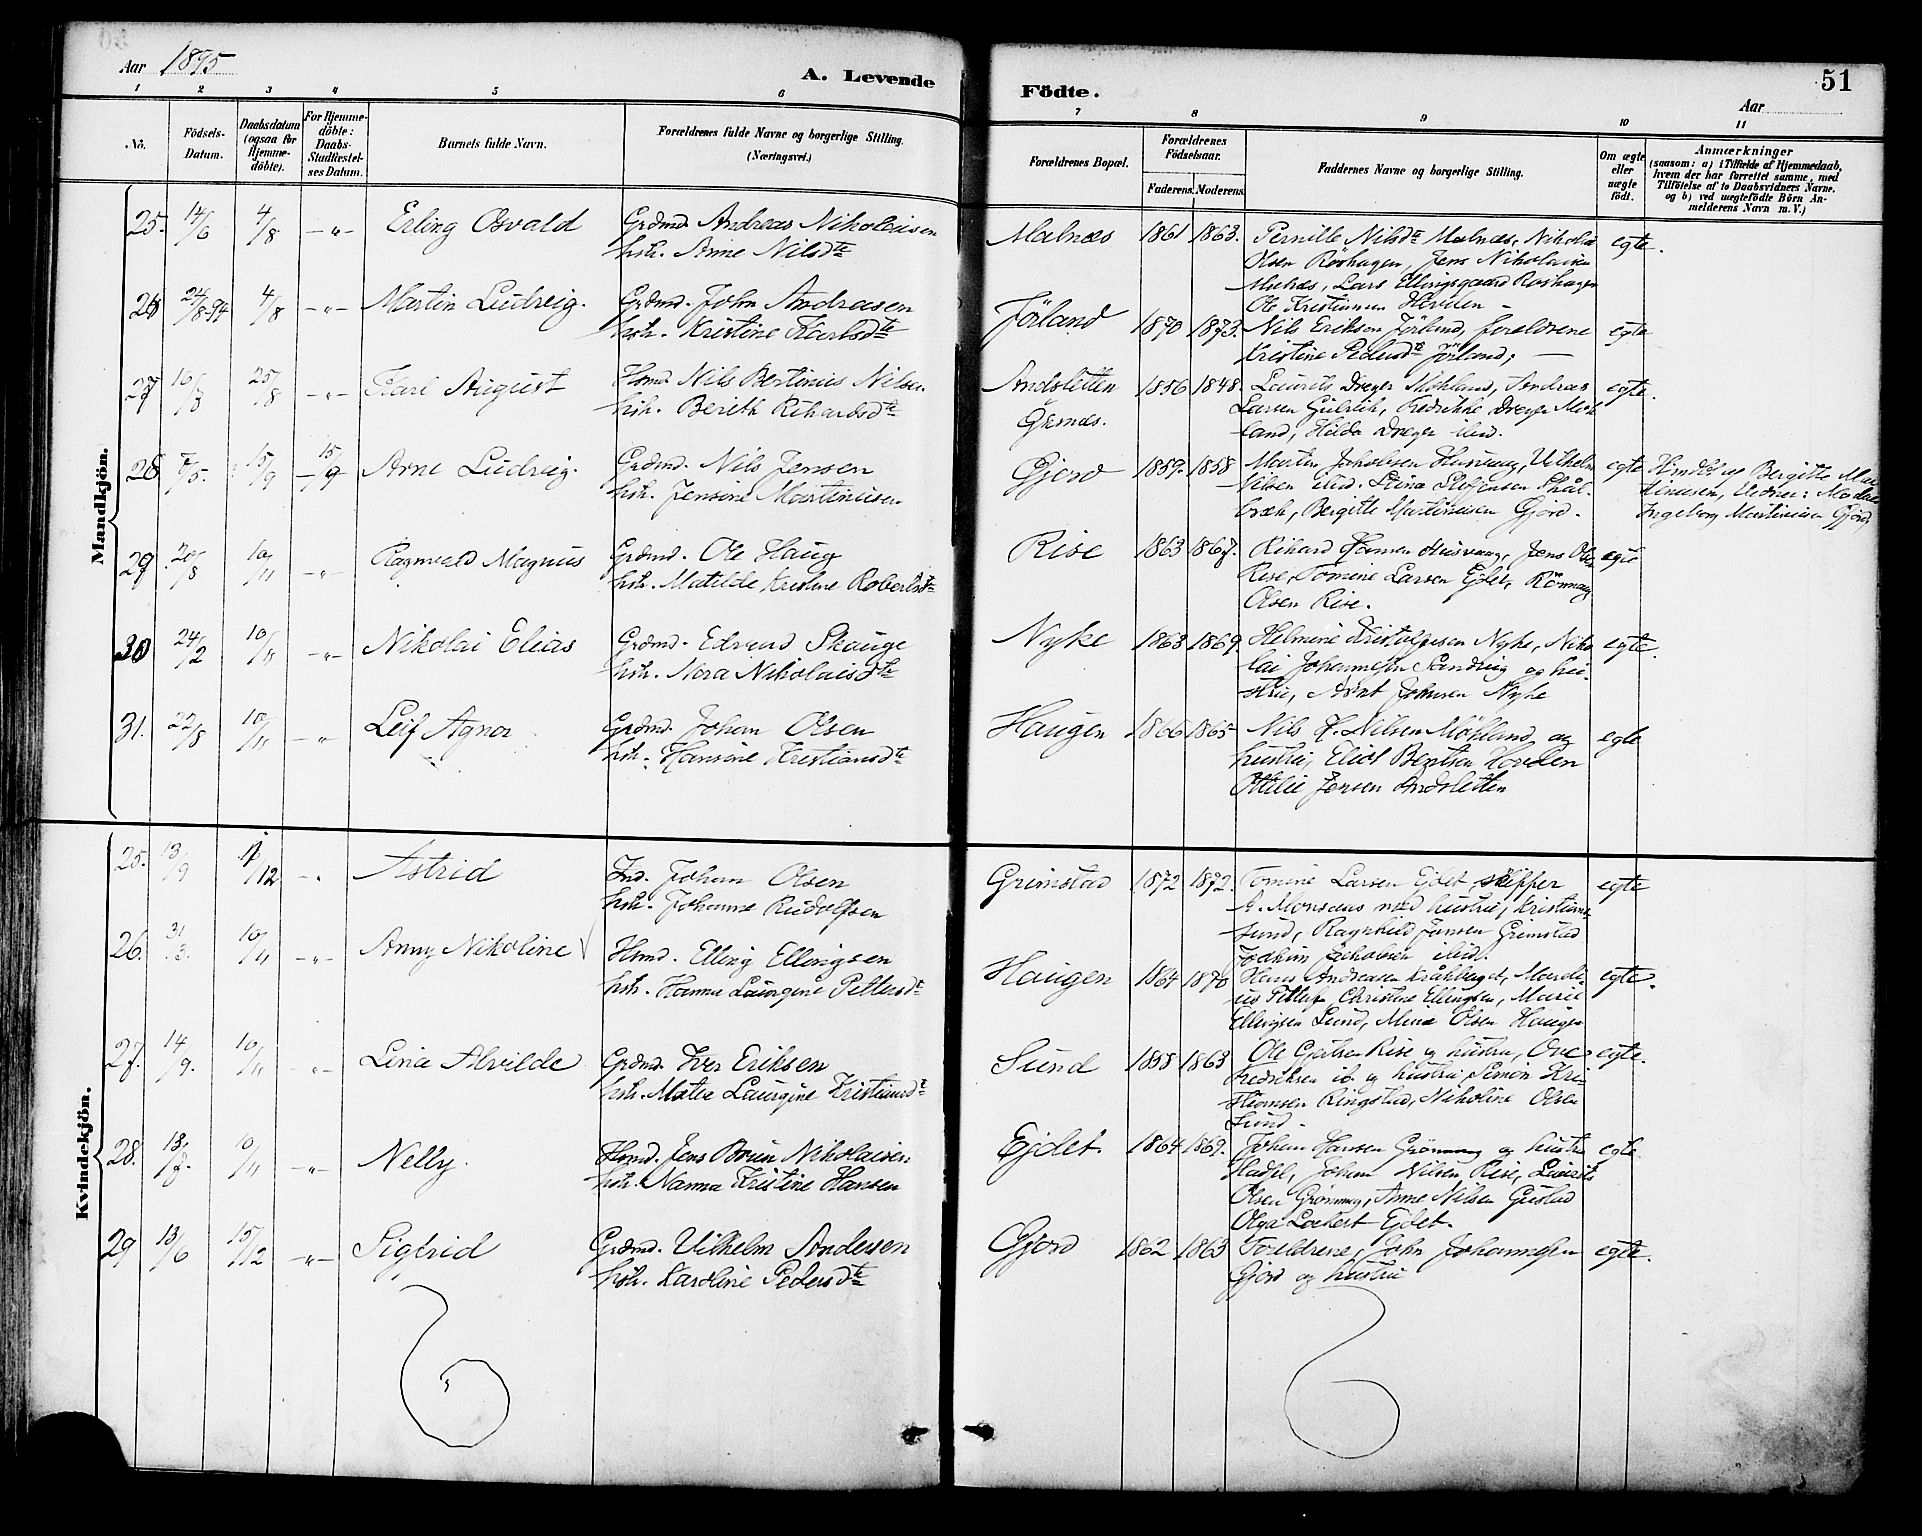 Aar 1895
A. Levende
Födte.
51
Aar
1 2 3 4 5 6 7 8 9 10 11
No.
Födsels-
Datum.
Daabsdatum
(ogsaa for
Hjemme-
döbte).
For Hjemme-
döbte:
Daabs-
Stadfæstel-
ses Datum.
Barnets fulde Navn.
Forældrenes fulde Navne og borgerlige Stilling.
(Næringsvei.)
Forældrenes Bopæl.
Forældrenes
Födselsaar.
Faderens. Moderens.
Faddernes Navne og borgerlige Stilling.
Om ægte
eller
uægte
födt.
Anmærkninger
(saasom: a) i Tilfælde af Hjemmedaab,
hvem der har forrettet samme, med
Tilföielse af to Daabsvidners Navne,
og b) ved uegtefödte Börn An-
melderens Navn m. V.)
Mandkjön.
25. 14/6 4/8 -„- Erling Osvald
Grdmd. Andreas Nikolaisen
hst. Anne Nilsdtr
Malnæs 1861 1863.
Pernille Nilsdtr Malnæs, Nikolai
Olsen Røshagen, Jens Nikolaisen
Malnæs, Lars Ellingsgaard Røshagen
Ole Kristiansen Hovden -
egte.
26 24/8-94 4/8 -„- Martin Ludvig.
Grdmd. John Andreasen
hst. Kristine Karlsdtr
Jörland 1870 1873.
Nils Eriksen Jörland, foreldrene
Kristine Pedersdtr Jörland; -
egte
27 10/8 25/8 -„- Karl August
Hsmd. Nils Bertinius Nilsen
hst. Berith Rikardsdtr
Andsletten
Gjesnæs.
1856 1848.
Laurits Dreyer Møkland, Andreas
Larsen Gulstik, Fredrikke Dreyer Møk
land, Hilda Dreyer ibid.
egte.
28 7/5. 15/9 15/9 Arne Ludvig.
Grdmd. Nils Jensen
hst. Jensine Martinusen
Gjord 1859. 1858
Martin Jakobsen Husvaag, Vilhelm
Nilsen ibid. Stina Steffensen Skål-
bræk, Bergitte Martinusen Gjord.
egte
Hmdbt af Bergitte Mar
tinusen, Vidner: Moderen
Ingeborg Martinusen Gjord
29 20/8 10/11 -„- Ragnvald Magnus
Grdmd. Ole Haug
hst. Matilde Kristine Robertsdtr
Rise 1863 1867.
Rikard Hansen Husvaag, Jens Olsen
Rise, Tomine Larsen Ejdet, Rönnaug
Olsen Rise.
egte
30 24/2 10/8 -„- Nikolai Elias
Grdmd. Edvard Skauge
hst. Nora Nikolaisdtr
Nyke 1863 1869.
Helmine Kristoffersen Nyke, Niko
lai Johannesen Sandvig og hu-
stru, Arnt Johnsen Nyke
egte.
31. 22/8 10/11 -„ Leif Agnor
Grdmd. Johan Olsen
hst. Hansine Kristiansdtr
Haugen 1866 1865
Nils H. Nilsen Møkland og
hustru, Elias Bentsen Hovden
Ottilie Jensen Andsletten
egte
Kvindekjön.
25. 13/9 1/12 -„ Astrid
Ind. Johan Olsen
hst. Johanne Rudolfsen
Grimstad 1872 1872.
Tomine Larsen Ejdet, skipper
A. Monsens med hustru, Kristian-
sund, Ragnhild Jensen Grimstad
Joakim Jakobsen ibid.
egte
26. 31/3. 10/11 -„- Anny Nikoline
Hsmd. Elling Ellingsen
hst. Hanna Laurgine Pettersdtr
Haugen 1864 1870
Hans Andreasen Kråkberget, Mardi-
us Petters, Christine Ellingsen, Marie
Ellingsen Sund, Mina Olsen Haugen
egte.
27. 14/9. 10/11 -„- Lina Alvilde
Grdmd. Iver Eriksen
hst. Matea Laurgine Kristiansdtr
Sund 1855 1863
Ole Gjertsen Rise og hustru, Ove
Fredriksen ib. og hustru, Simon Kri-
stiansen Ringstad, Nikoline Olsen
Sund.
egte.
28. 13/7. 10/11 -„- Nelly.
Hsmd. Jens Bruun Nikolaisen
hst. Nanna Kristine Hansen
Ejdet. 1864 1869.
Johan Hansen Grønning og hustru
Hadsel, Johan Nilsen Rise, Laurits
Olsen Grønning, Anne Nilsen Gustad
Olga Lockert Ejdet.
egte.
29 13/6 15/12 -„- Sigfrid
Grdmd. Vilhelm Andersen
hst. Karoline Pedersdtr
Gjord 1862 1863
Foreldrene, John Johannesen
Gjord og hustru
egte.